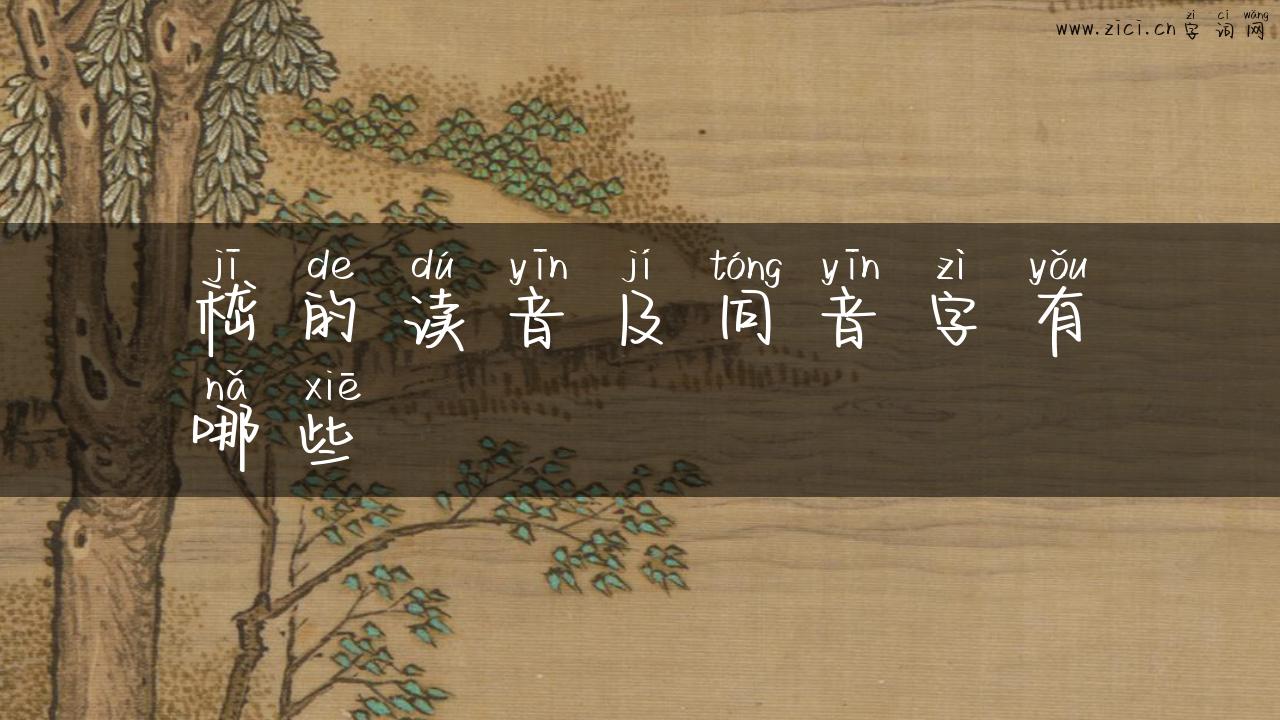 zì cí wǎng
www.zici.cn 字词网
jī de dú yīn jí tóng yīn zì yǒu
嵇的读音及同音字有
nǎ xiē
哪些